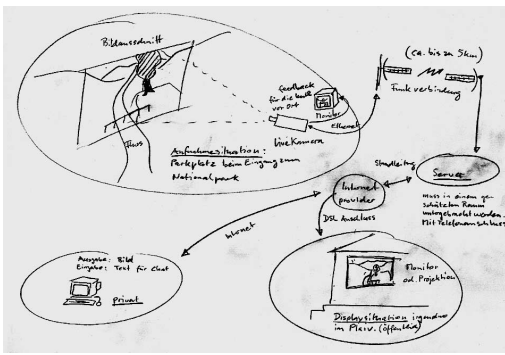 Bildausschnitt
Fluss
Feedback
für die Leute
vor Ort
Monitor
Ethernet
Live Kamera
Aufnahmesituation:
Parkplatz beim Eingang zum
Nationalpark
(ca. bis zu 5km)
Funkverbindung
Standleitung
Server
muss in einem ge
schützten Raum
untergebracht werden.
Mit Telefonanschluss
Internet
provider
DSL Anschluss
Internet
Ausgabe: Bild
Eingabe: Text für Chat
Privat
Monitor
od. Projektion
Displaysituation irgendwo
im (öffentlich)